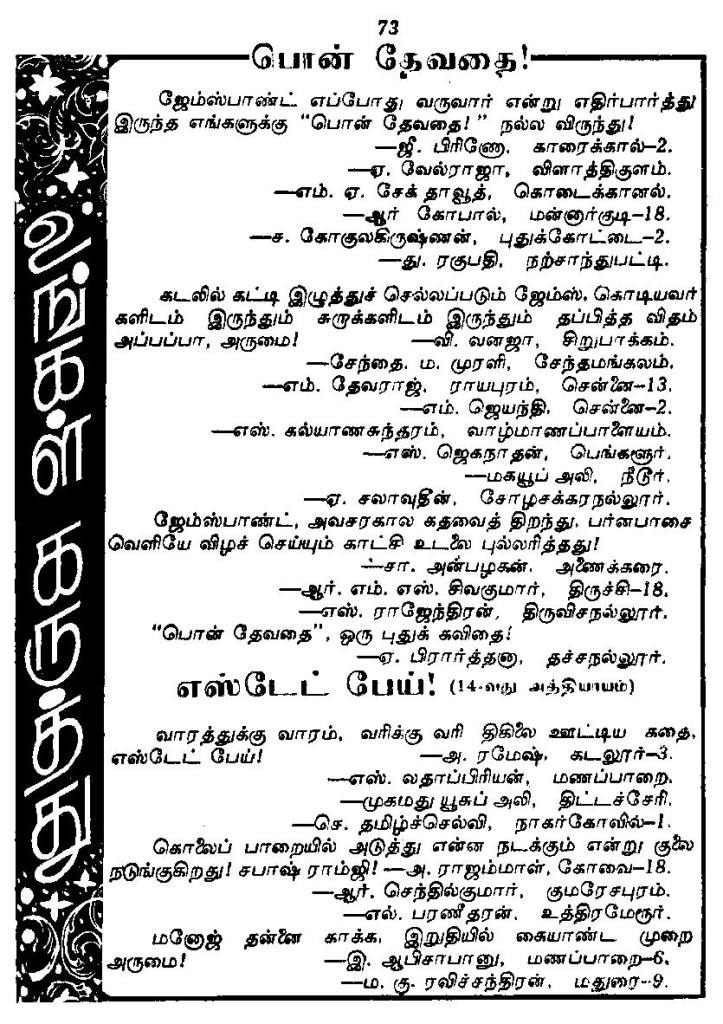 73
பொன் தேவதை!
ஜேம்ஸ்பாண்ட் எப்போது வருவார் என்று எதிர்பார்த்து
இருந்த எங்களுக்கு “பொன் தேவதை!” நல்ல விருந்து!
—ஜீ. பிரினோ, காரைக்கால்–2.
—ஏ. வேல்ராஜா, விளாத்திகுளம்.
—எம். ஏ. சேக் தாவூத், கொடைக்கானல்.
—ஆர் கோபால், மன்னார்குடி–18.
—ச. கோகுலகிருஷ்ணன், புதுக்கோட்டை–2.
—து. ரகுபதி, நற்சாந்துபட்டி.
கடலில் கட்டி இழுத்துச் செல்லப்படும் ஜேம்ஸ், கொடியவர்
களிடம் இருந்தும் சுறாக்களிடம் இருந்தும் தப்பித்த விதம்
அப்பப்பா, அருமை! —வி. வனஜா, சிறுபாக்கம்.
—சேந்தை. ம. முரளி, சேந்தமங்கலம்.
—எம். தேவராஜ், ராயபுரம், சென்னை–13.
—எம். ஜெயந்தி, சென்னை–2.
—எஸ். கல்யாணசுந்தரம், வாழ்மாணப்பாளையம்.
—எஸ். ஜெகநாதன், பெங்களூர்.
—மகயூப் அலி, நீடூர்.
—ஏ. சலாவுதீன், சோழசக்கரநல்லூர்.
ஜேம்ஸ்பாண்ட், அவசரகால கதவைத் திறந்து, பர்னபாசை
வெளியே விழச் செய்யும் காட்சி உடலை புல்லரித்தது!
—சா. அன்பழகன், அணைக்கரை.
—ஆர். எம். எஸ். சிவகுமார், திருச்சி–18.
—எஸ். ராஜேந்திரன், திருவிசநல்லூர்.
“பொன் தேவதை”, ஒரு புதுக் கவிதை!
—ஏ. பிரார்த்தனா, தச்சநல்லூர்.
எஸ்டேட் பேய்! (14-வது அத்தியாயம்)
வாரத்துக்கு வாரம், வரிக்கு வரி திகிலை ஊட்டிய கதை,
எஸ்டேட் பேய்! —அ. ரமேஷ், கடலூர்–3.
—எஸ். லதாப்பிரியன், மணப்பாறை.
—முகமது யூசுப் அலி, திட்டச்சேரி.
—செ. தமிழ்ச்செல்வி, நாகர்கோவில்–1.
கொலைப் பாறையில் அடுத்து என்ன நடக்கும் என்று குலை
நடுங்குகிறது! சபாஷ் ராம்ஜி! —அ. ராஜம்மாள், கோவை–18.
—ஆர். செந்தில்குமார், குமரேசபுரம்.
—எல். பரணீதரன், உத்திரமேரூர்.
மனோஜ் தன்னை காக்க, இறுதியில் கையாண்ட முறை
அருமை! —இ. ஆபிசாபானு, மணப்பாறை–6.
—ம. கு. ரவிச்சந்திரன், மதுரை–9.
உங்கள் கருத்து